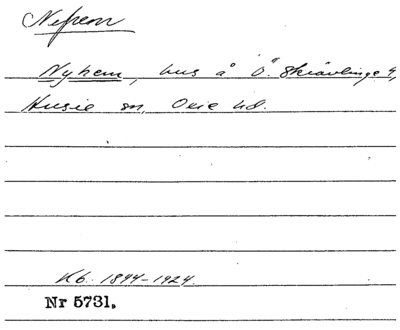 Nyhem
Nyhem, hus å Ö. Skrävlinge 4,
Husie sn, Oxie hd.
Kb. 1894-1924.
Nr 5731.